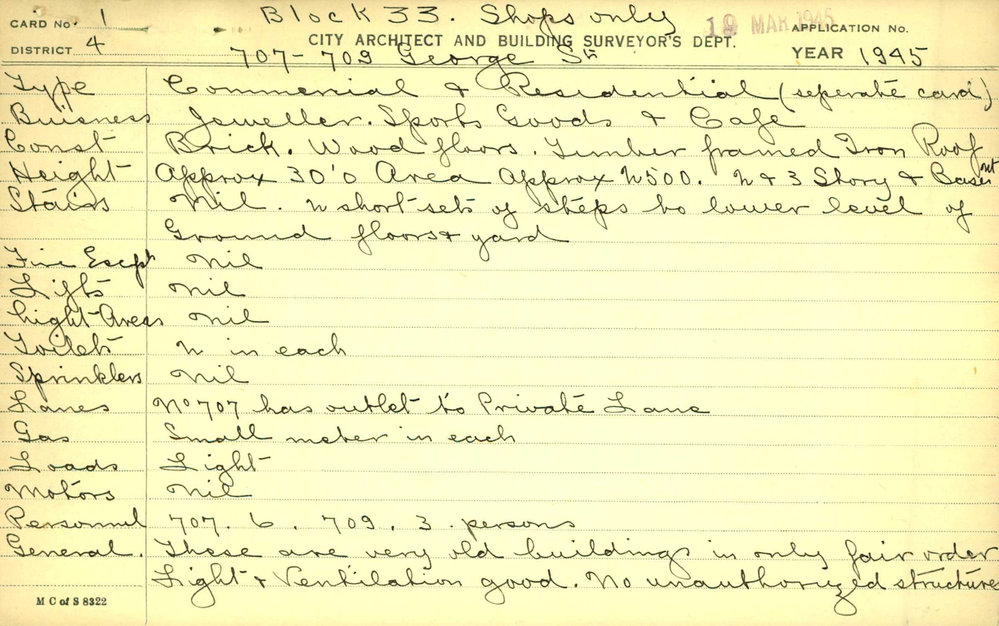 CARD No. 1 Block 33. Shops only 19 MAR 1945 APPLICATION No.
DISTRICT 4 CITY ARCHITECT AND BUILDING SURVEYOR'S DEPT.
707-709 George St YEAR 1945
Type Commercial & Residential (seperate card)
Buisness Jeweller. Sports Goods & Cafe
Const Brick. Wood floors. Timber framed Iron Roof
Height Approx 30'0 Area Approx 2500. 2 & 3 Story & Basemnt
Stairs Nil. 2 short sets of steps to lower level of
Ground floors & yard
Fire Escps Nil
Lifts Nil
Light Areas Nil
Toilets 2 in each
Sprinklers Nil
Lanes No 707 has outlet to Private Lane
Gas Small meter in each
Loads Light
Motors Nil
Personnel 707. 6. 709. 3. persons
General. These are very old buildings in only fair order
Light & Ventilation good. No unauthorized structures
M C of S 8322